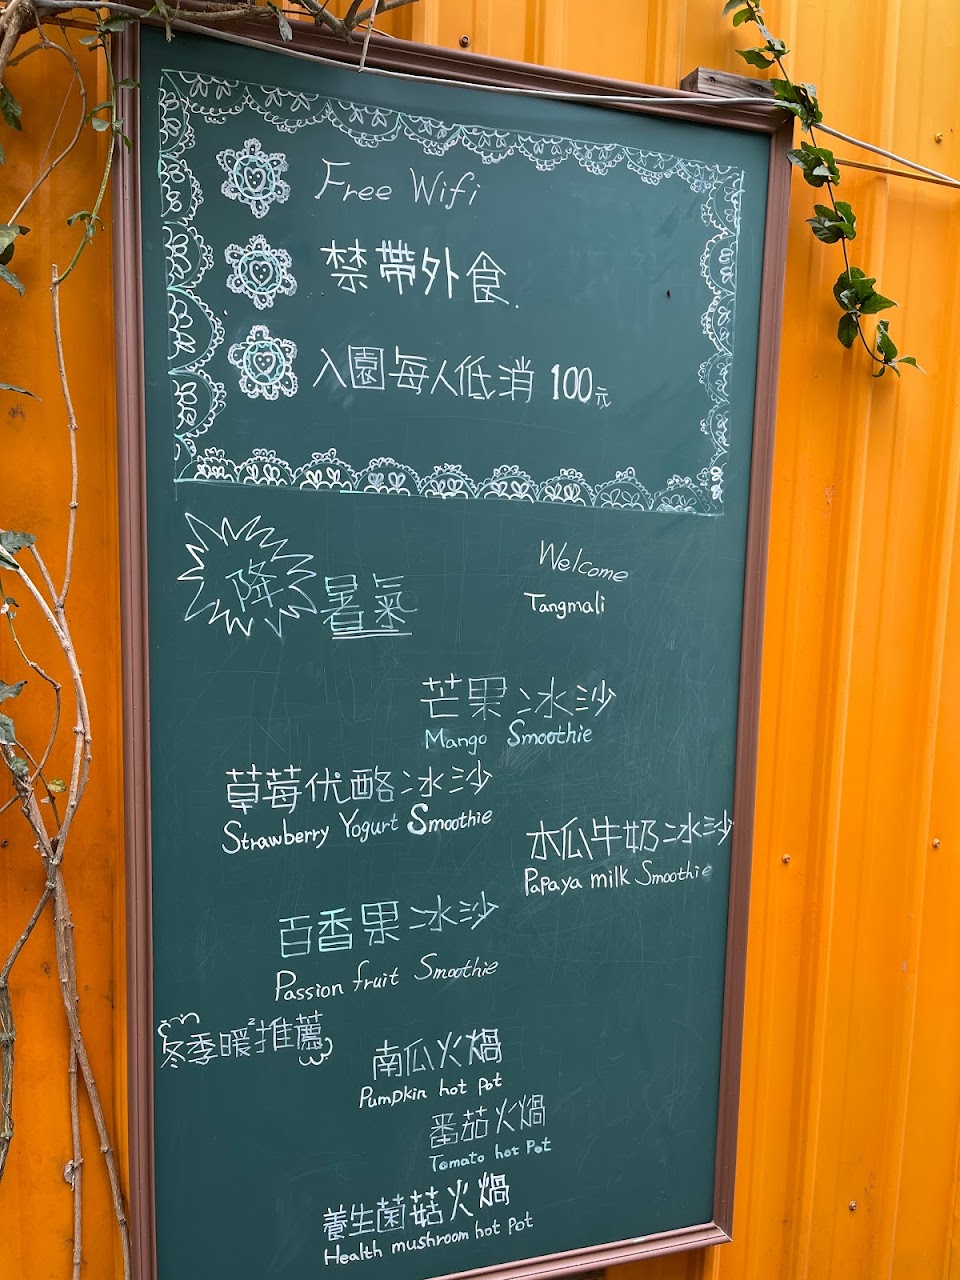 Free Wifi
禁帶外食.
入園每人低消 100元
降暑氣
Welcome
Tangmali
芒果冰沙
Mango Smoothie
草莓优酪冰沙
Strawberry Yogurt Smoothie
木瓜牛奶冰沙
Papaya milk Smoothie
百香果冰沙
Passion fruit Smoothie
冬季暖²推薦
南瓜火鍋
Pumpkin hot pot
番茄火鍋
Tomato hot Pot
養生菌菇火鍋
Health mushroom hot Pot